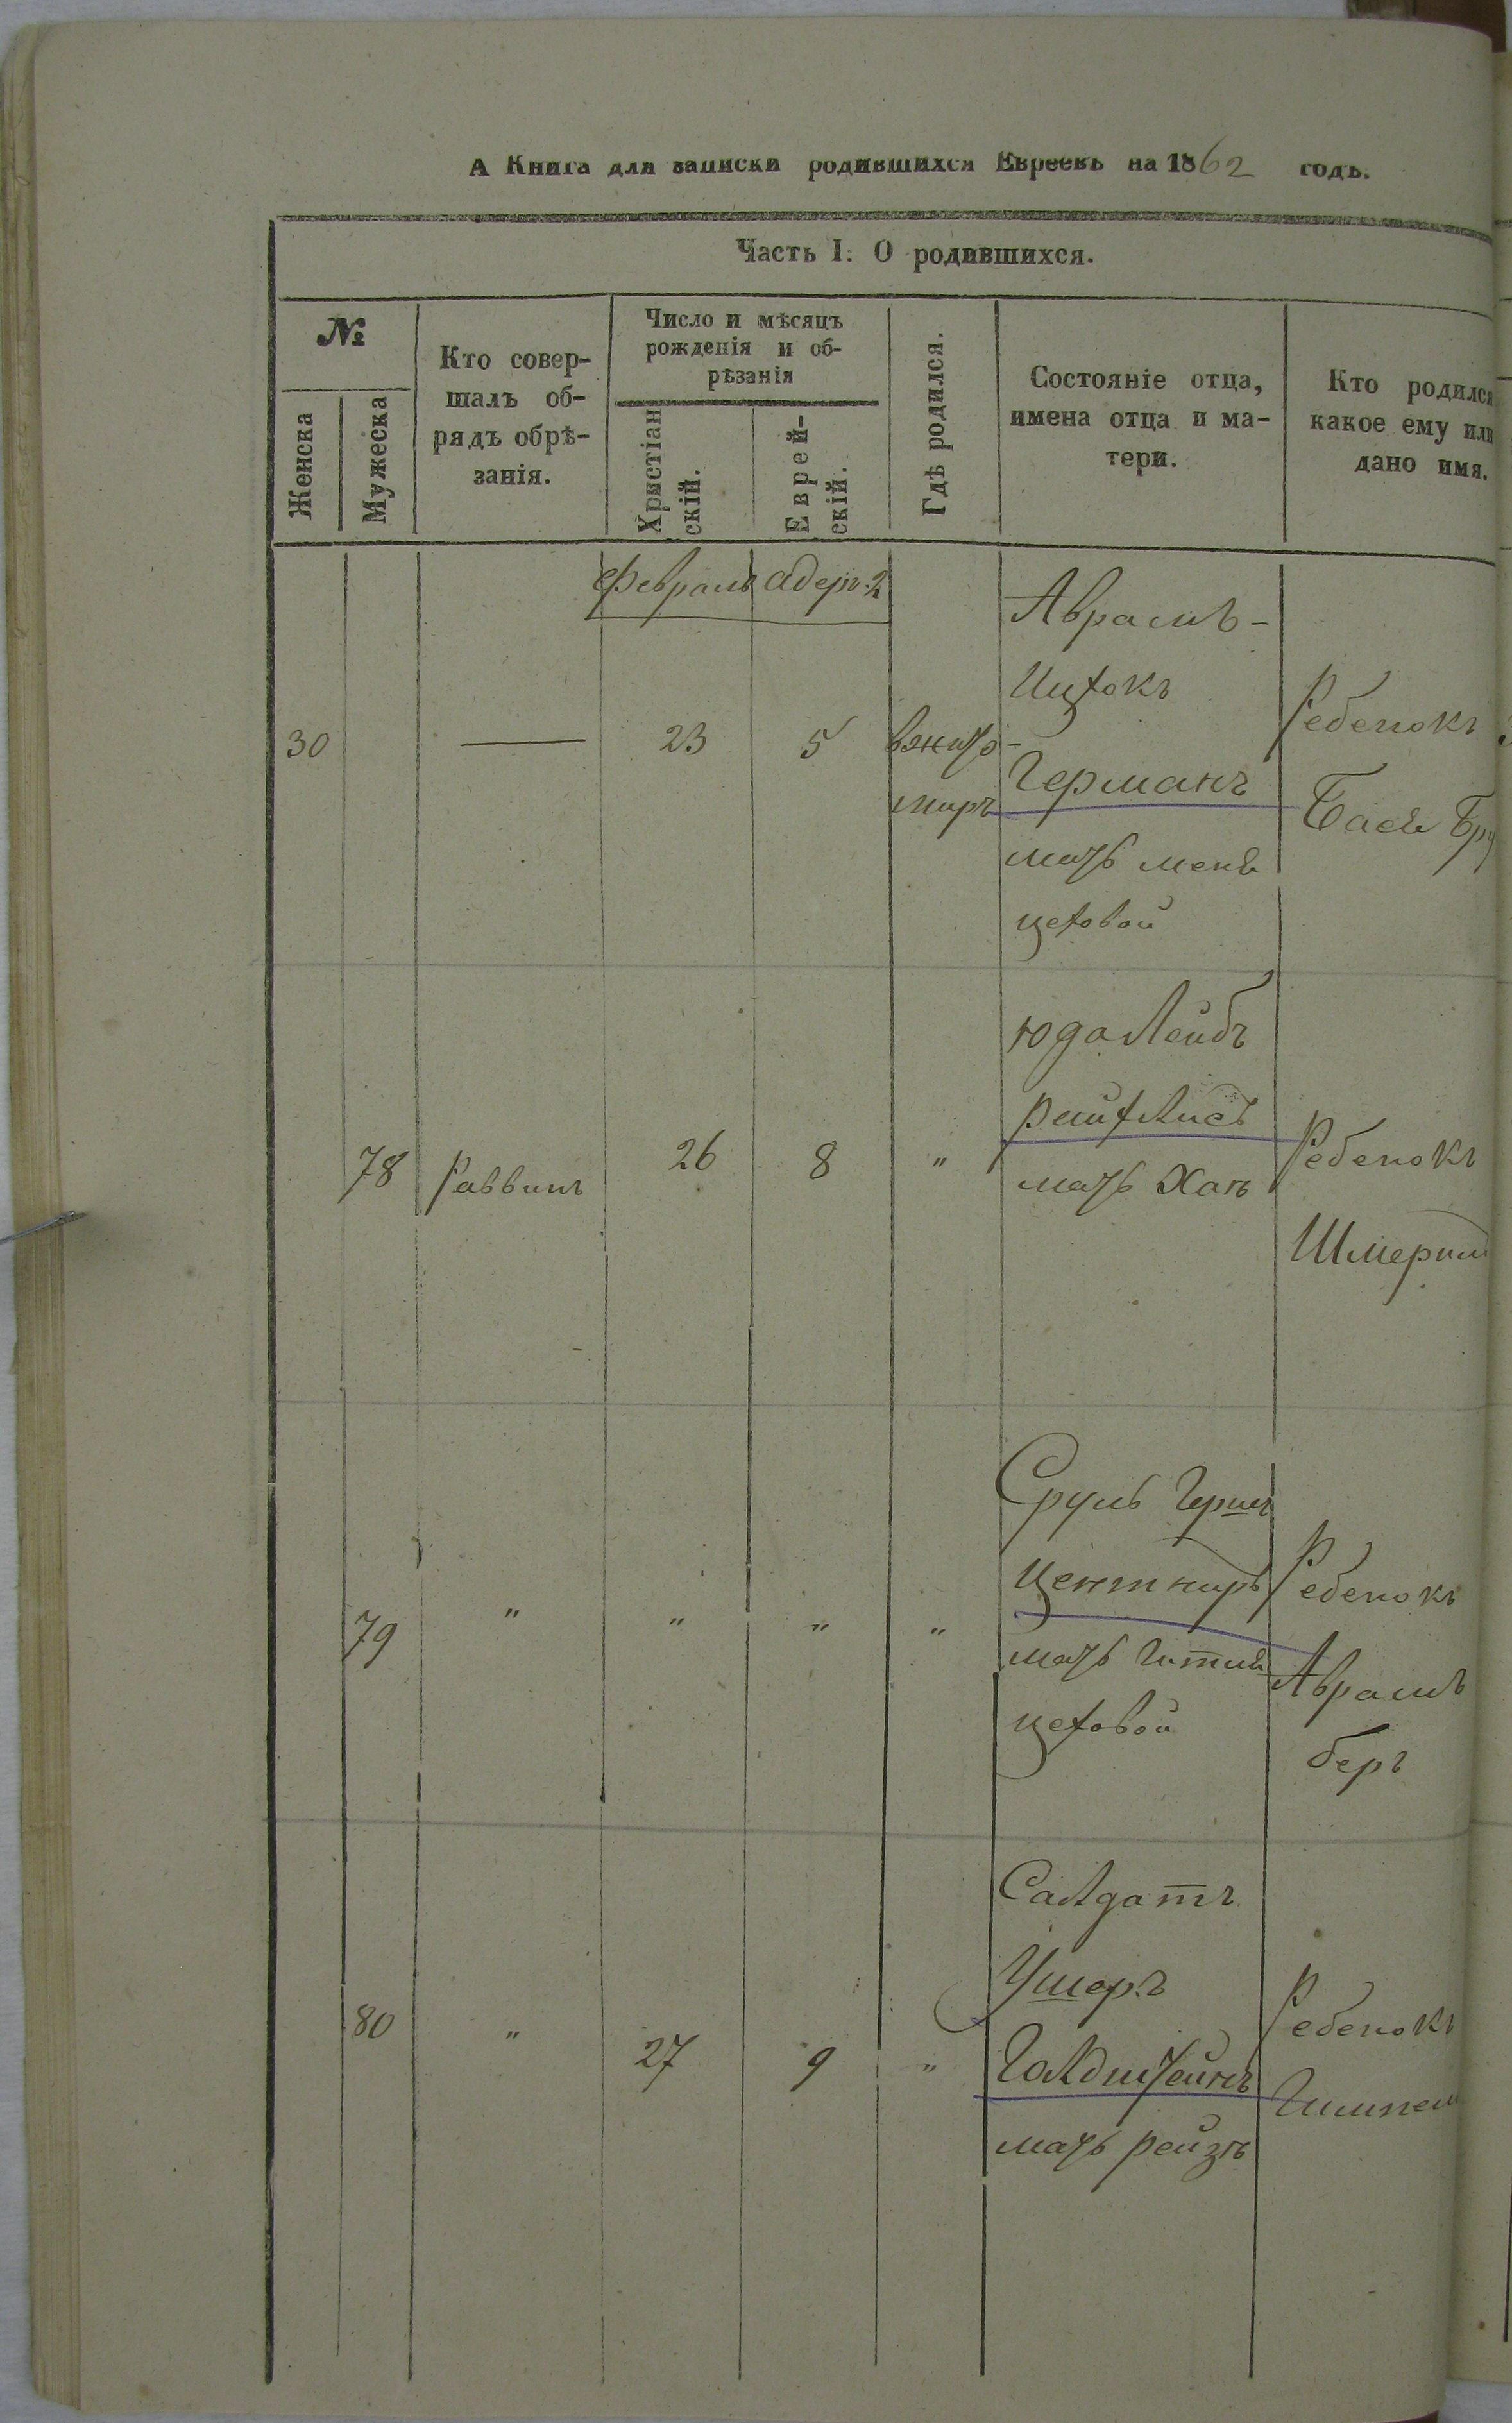 А Книга для записки родившихся Евреевъ на 1862 годъ.
Часть I. О родившихся.
№
Женска
Мужеска
Кто совер-
шалъ об-
рядъ обрѣ-
занія.
Число и мѣсяцъ
рожденія и об-
рѣзанія
Христіан
скій.
Еврей-
скій.
Гдѣ родился.
Состояніе отца,
имена отца и ма-
тери.
Кто родился
какое ему или
дано имя.
Февраль адеръ 2
30
23
5
вжито-
миръ
Аврамъ-
Ицхокъ
Германъ
мать Меня
цеховой
Ребенокъ
Бася Бру
78
Раввинъ
26
8
"
Юда Лейбъ
мать Хана
Ребенокъ
Шмерил
79
"
"
"
"
Сруль Герш
Центниръ
мать Гитля
цеховой
Ребенокъ
Аврамъ
беръ
80
"
27
9
"
Салдатъ
Ушеръ
Голдштейнъ
мать Рейзъ
Ребенокъ
Гимпел